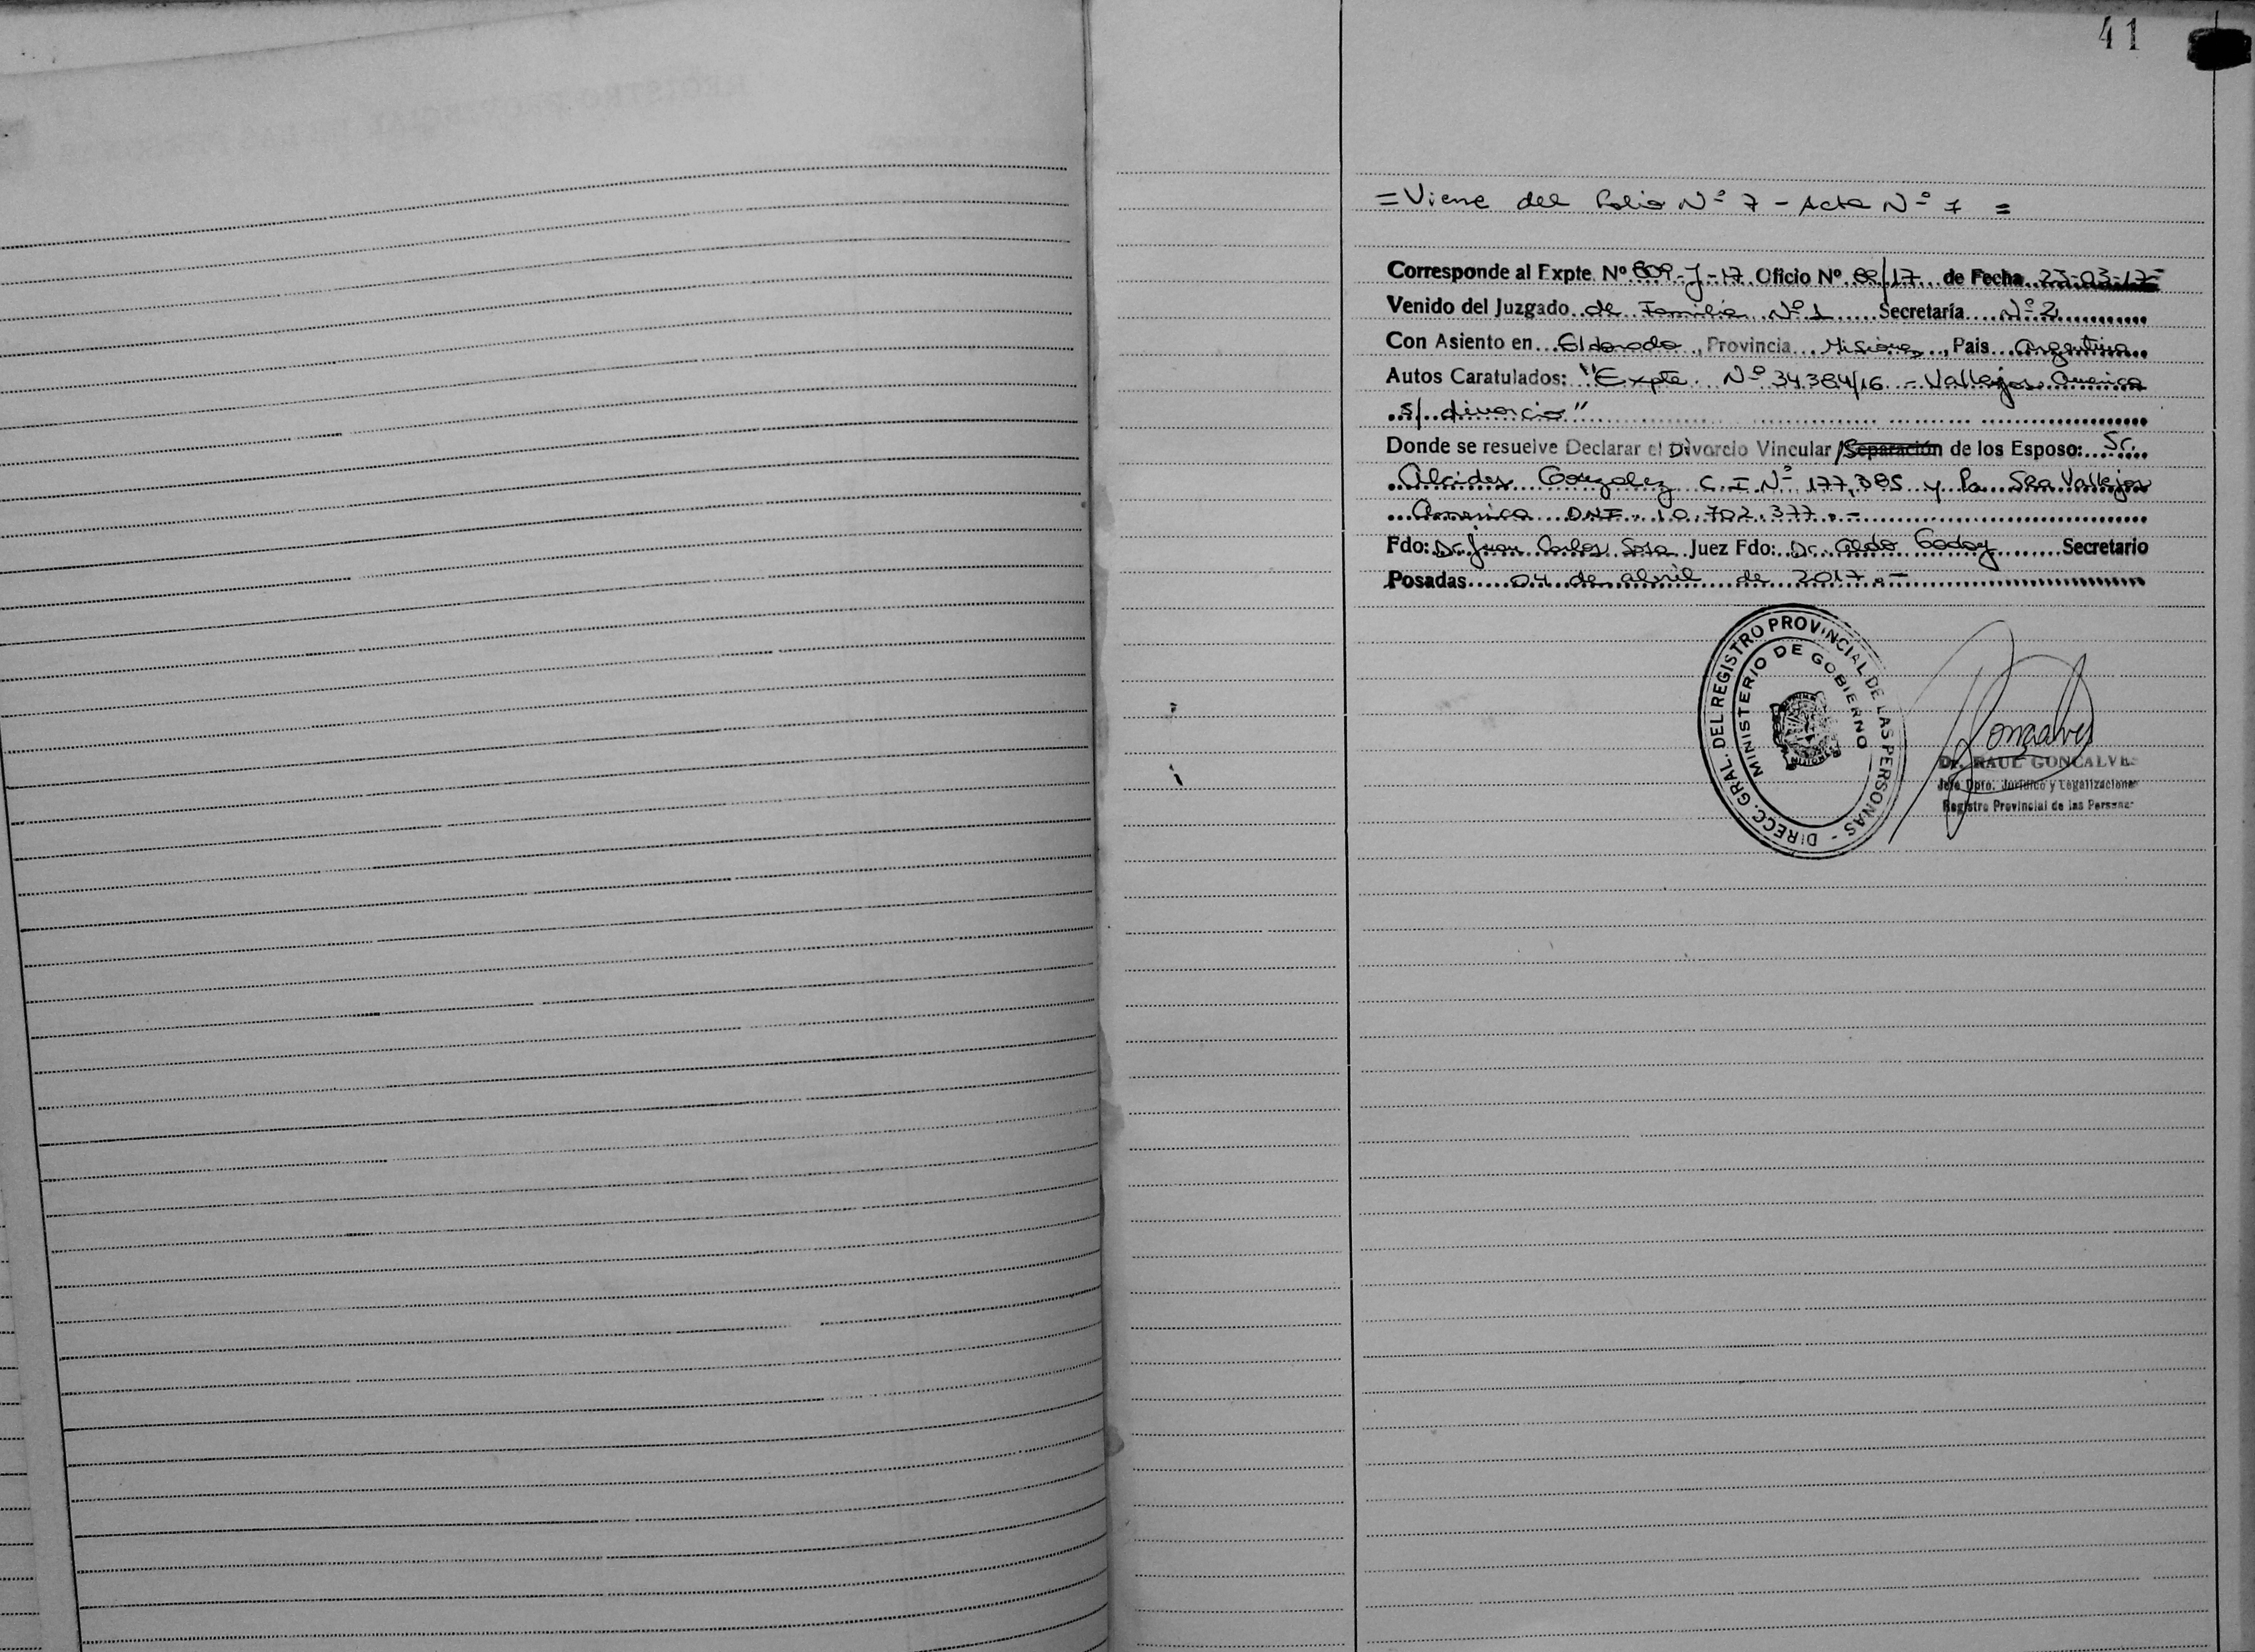 41
= Viene del Folio Nº 7 - Acta Nº 7 =
Corresponde al Expte. Nº 809-J-17 Oficio Nº 89/17 de Fecha 23-03-17-
Venido del Juzgado de Familia Nº 1 Secretaría Nº 2
Con Asiento en Eldorado, Provincia Misiones, Pais Argentina
Autos Caratulados: "Expte. Nº 34384/16 - Vallejos America
s/ divorcio"
Donde se resuelve Declarar el Divorcio Vincular / Separación de los Esposo: Sr.
Alcides Gonzalez C.I Nº 177.385 y la Sra Vallejos
America DNI. 10.702.377.-
Fdo: Dr. Juan Carlos Sosa Juez Fdo: Dr. Aldo Godoy Secretario
Posadas 04 de abril de 2017.-
DIRECC. GRAL. DEL REGISTRO PROVINCIAL DE LAS PERSONAS -
MINISTERIO DE GOBIERNO
MISIONES
Goncalves
Dr. RAUL GONCALVES
Jefe Dpto. Jurídico y Legalizaciones
Registro Provincial de las Personas